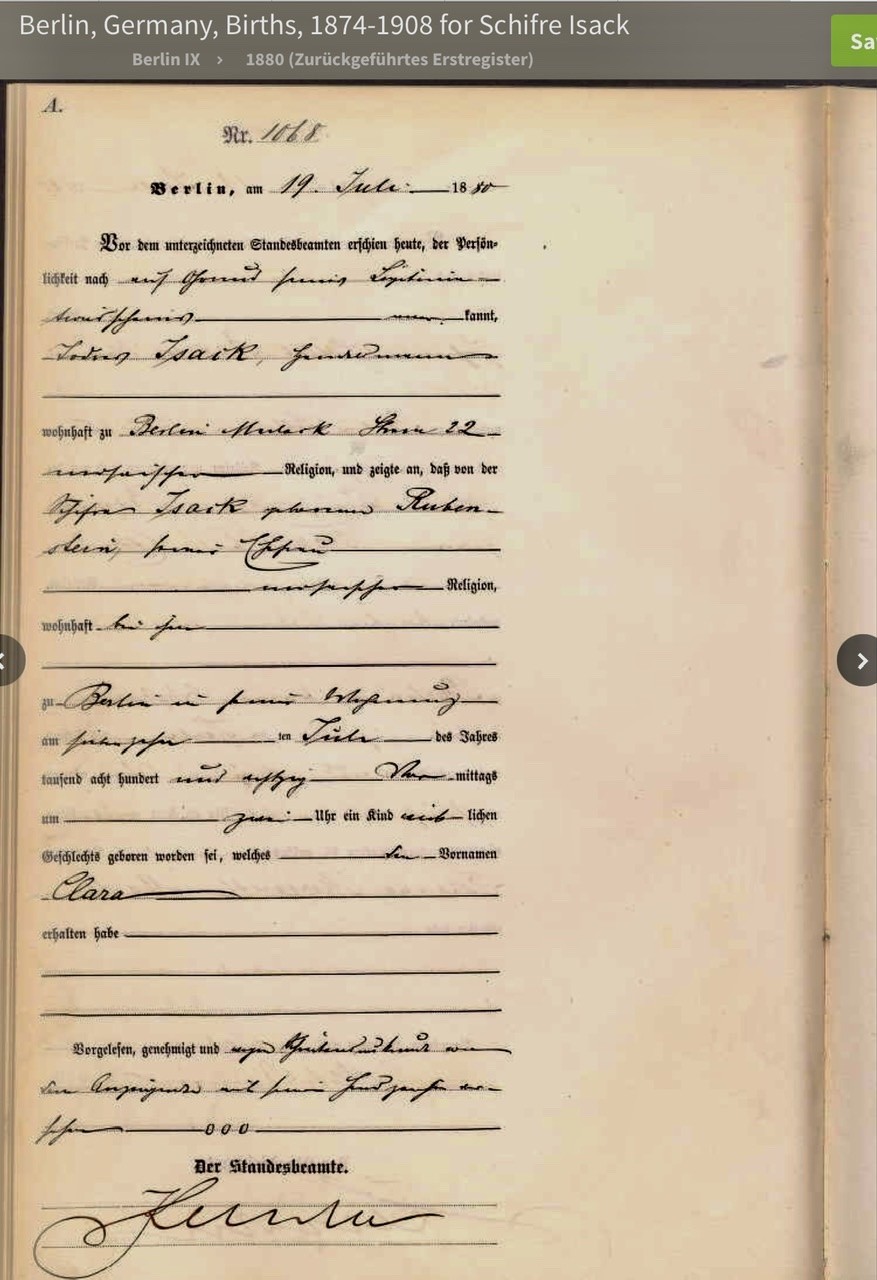 Berlin, Germany, Births, 1874-1908 for Schifre Isack
Sa
Berlin IX › 1880 (Zurückgeführtes Erstregister)
A.
Nr. 1068
Berlin, am 19. Juli 1880
Vor dem unterzeichneten Standesbeamten erschien heute, der Persön-
lichkeit nach auf Grund seines Legitima-
tionsscheins kannt,
Isack, Handelsmann
wohnhaft zu Berlin Mulack Strasse 22
mosaischer Religion, und zeigte an, daß von der
Schifre Isack geborenen Ruben-
stein, seiner Ehefrau
mosaischer Religion,
wohnhaft bei ihm
zu Berlin in seiner Wohnung
am siebzehn ten Juli des Jahres
tausend acht hundert und achtzig Vor mittags
um zwei Uhr ein Kind weib lichen
Geschlechts geboren worden sei, welches den Vornamen
Clara
erhalten habe
Vorgelesen, genehmigt und wegen Schreibensunkunde von
dem Anzeigenden mit seinem Handzeichen ver-
sehen 000
Der Standesbeamte.